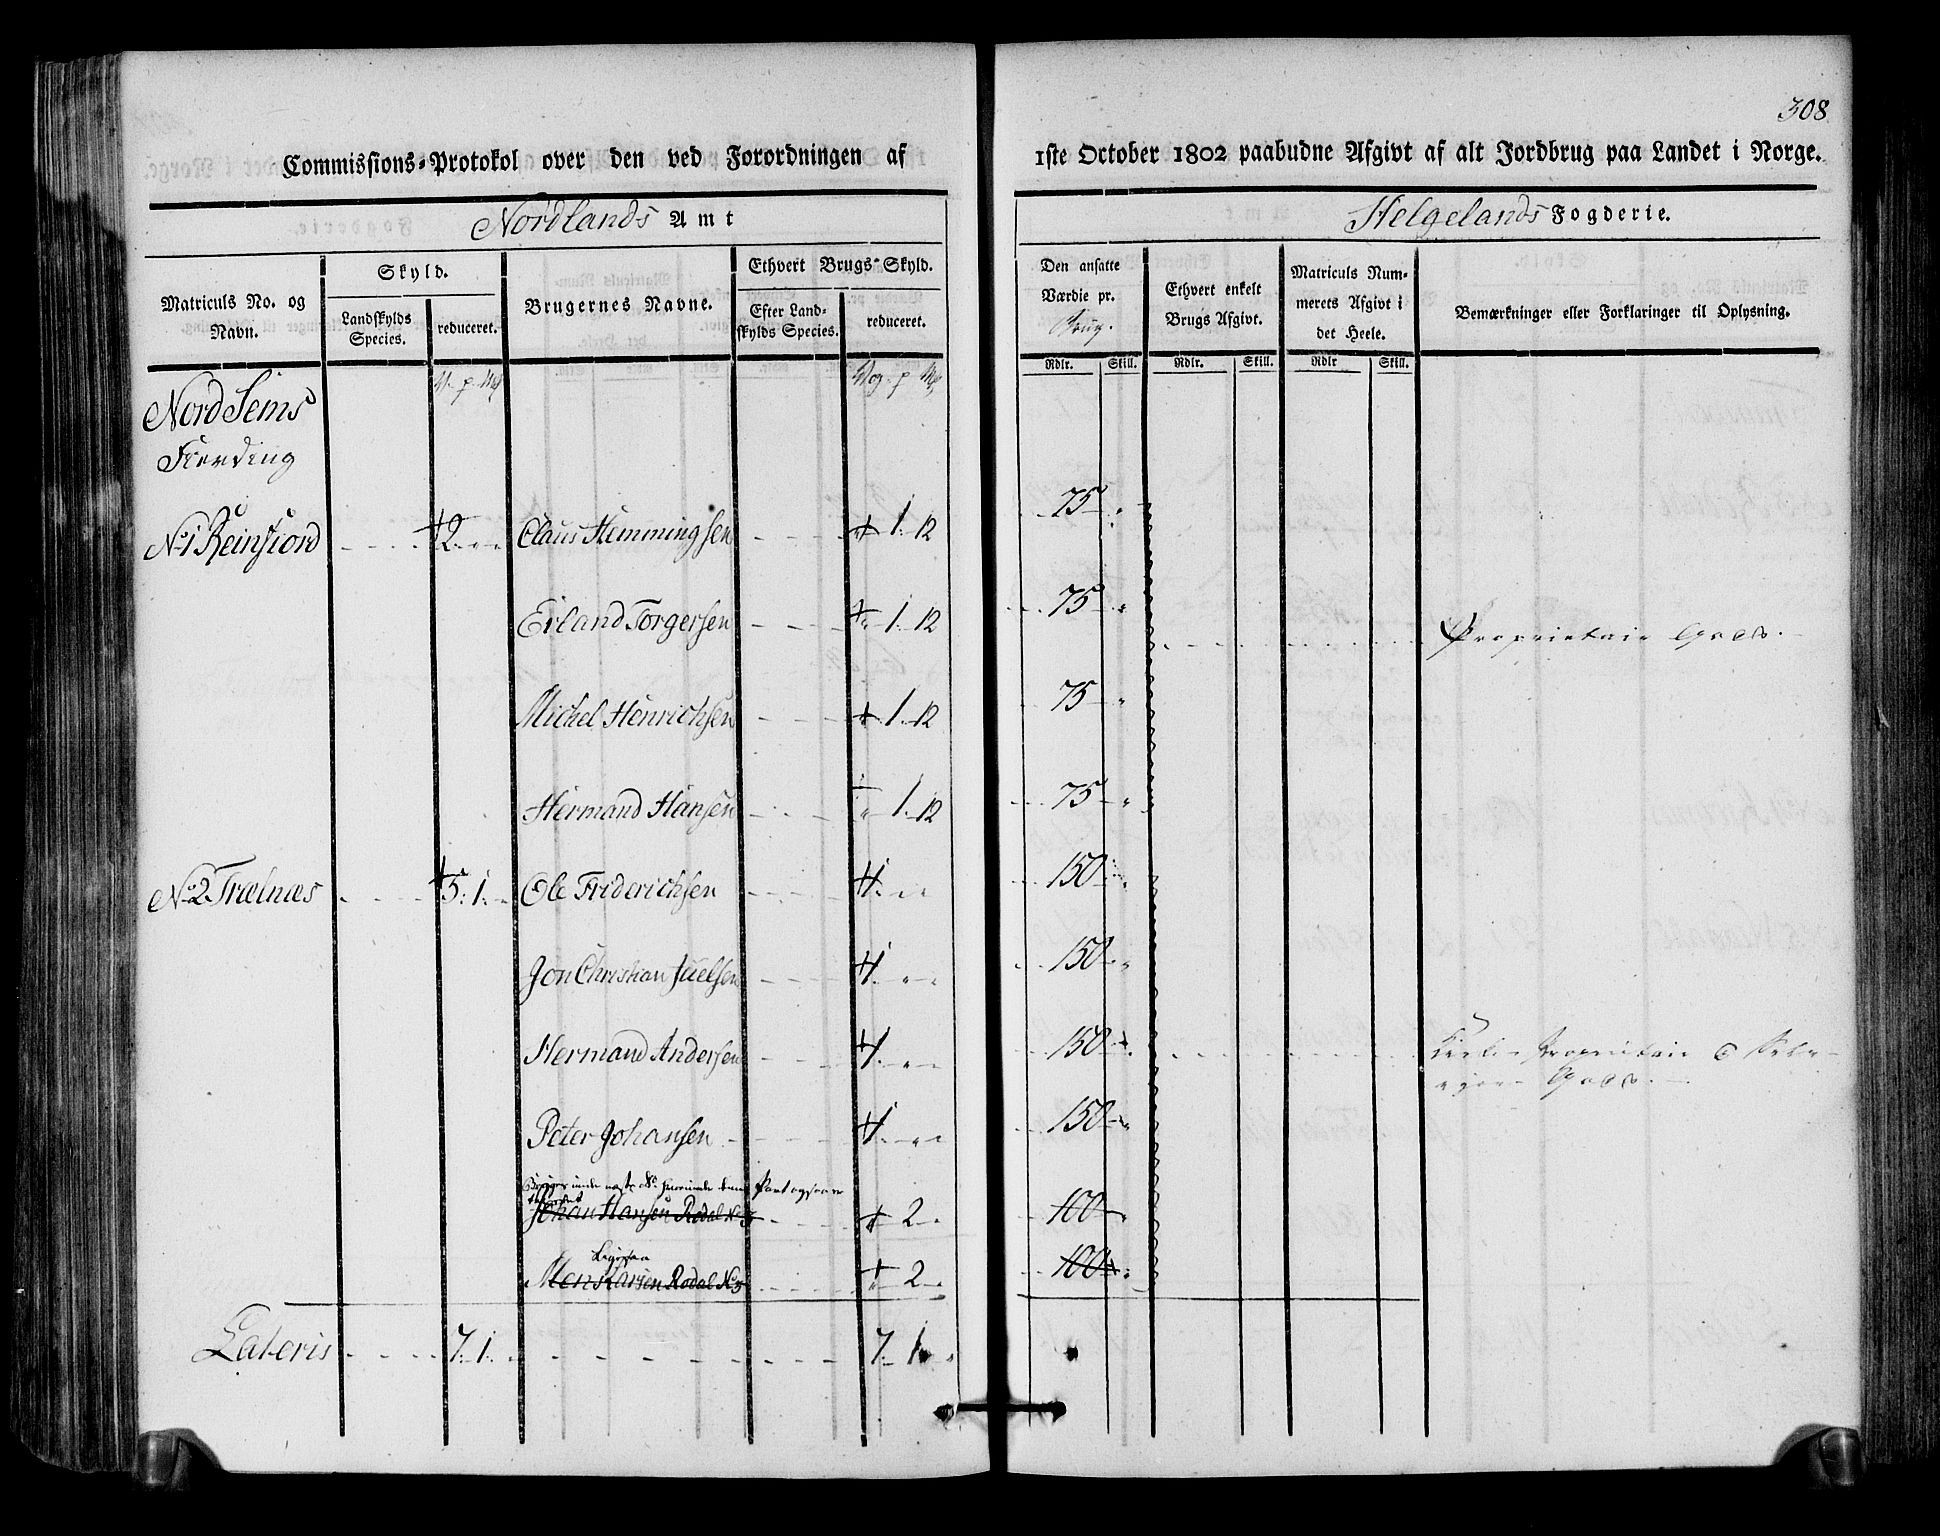 308
Commissions-Protokol over den ved Forordningen af 1ste October 1802 paabudne Afgivt af alt Jordbrug paa Landet i Norge.
Nordlands Amt
Helgelands Fogderie.
Matriculs No. og Navn.
Skyld.
Landskylds Species.
reduceret.
Brugernes Navne.
Ethvert Brugs-Skyld.
Efter Landskylds Species.
reduceret.
Den ansatte Værdie pr. Brug.
Ethvert enkelt Brugs Afgivt.
Matriculs Nummerets Afgivt i det Heele.
Bemærkninger eller Forklaringer til Oplysning.
Rdlr. Skill. Rdlr. Skill. Rdlr Skill.
V. p. Mk
Vog. p Mk
Nord Sems
Fierding
No 1 Reinfiord 2 " " Claus Hemmingsen " 1. 12 75 "
Erland Torgersen " 1. 12 75 " Proprietair Gods.
Michel Henrichsen " 1. 12 75 "
Hermand Hansen " 1. 12 75 "
No 2 Trælnæs 5. 1. Ole Friderichsen 1. " " 150 "
Jon Christian Juelsen 1. " " 150 "
Hermand Andersen 1. " " 150 " Proprietair
Gods.
Peter Johansen 1. " " 150 "
Johan Hansen Rodal No 3 " 2 " 100 "
Ligesaa
Rodal No 3 " 2 " 100 "
Lateris 7. 1. 7. 1 "